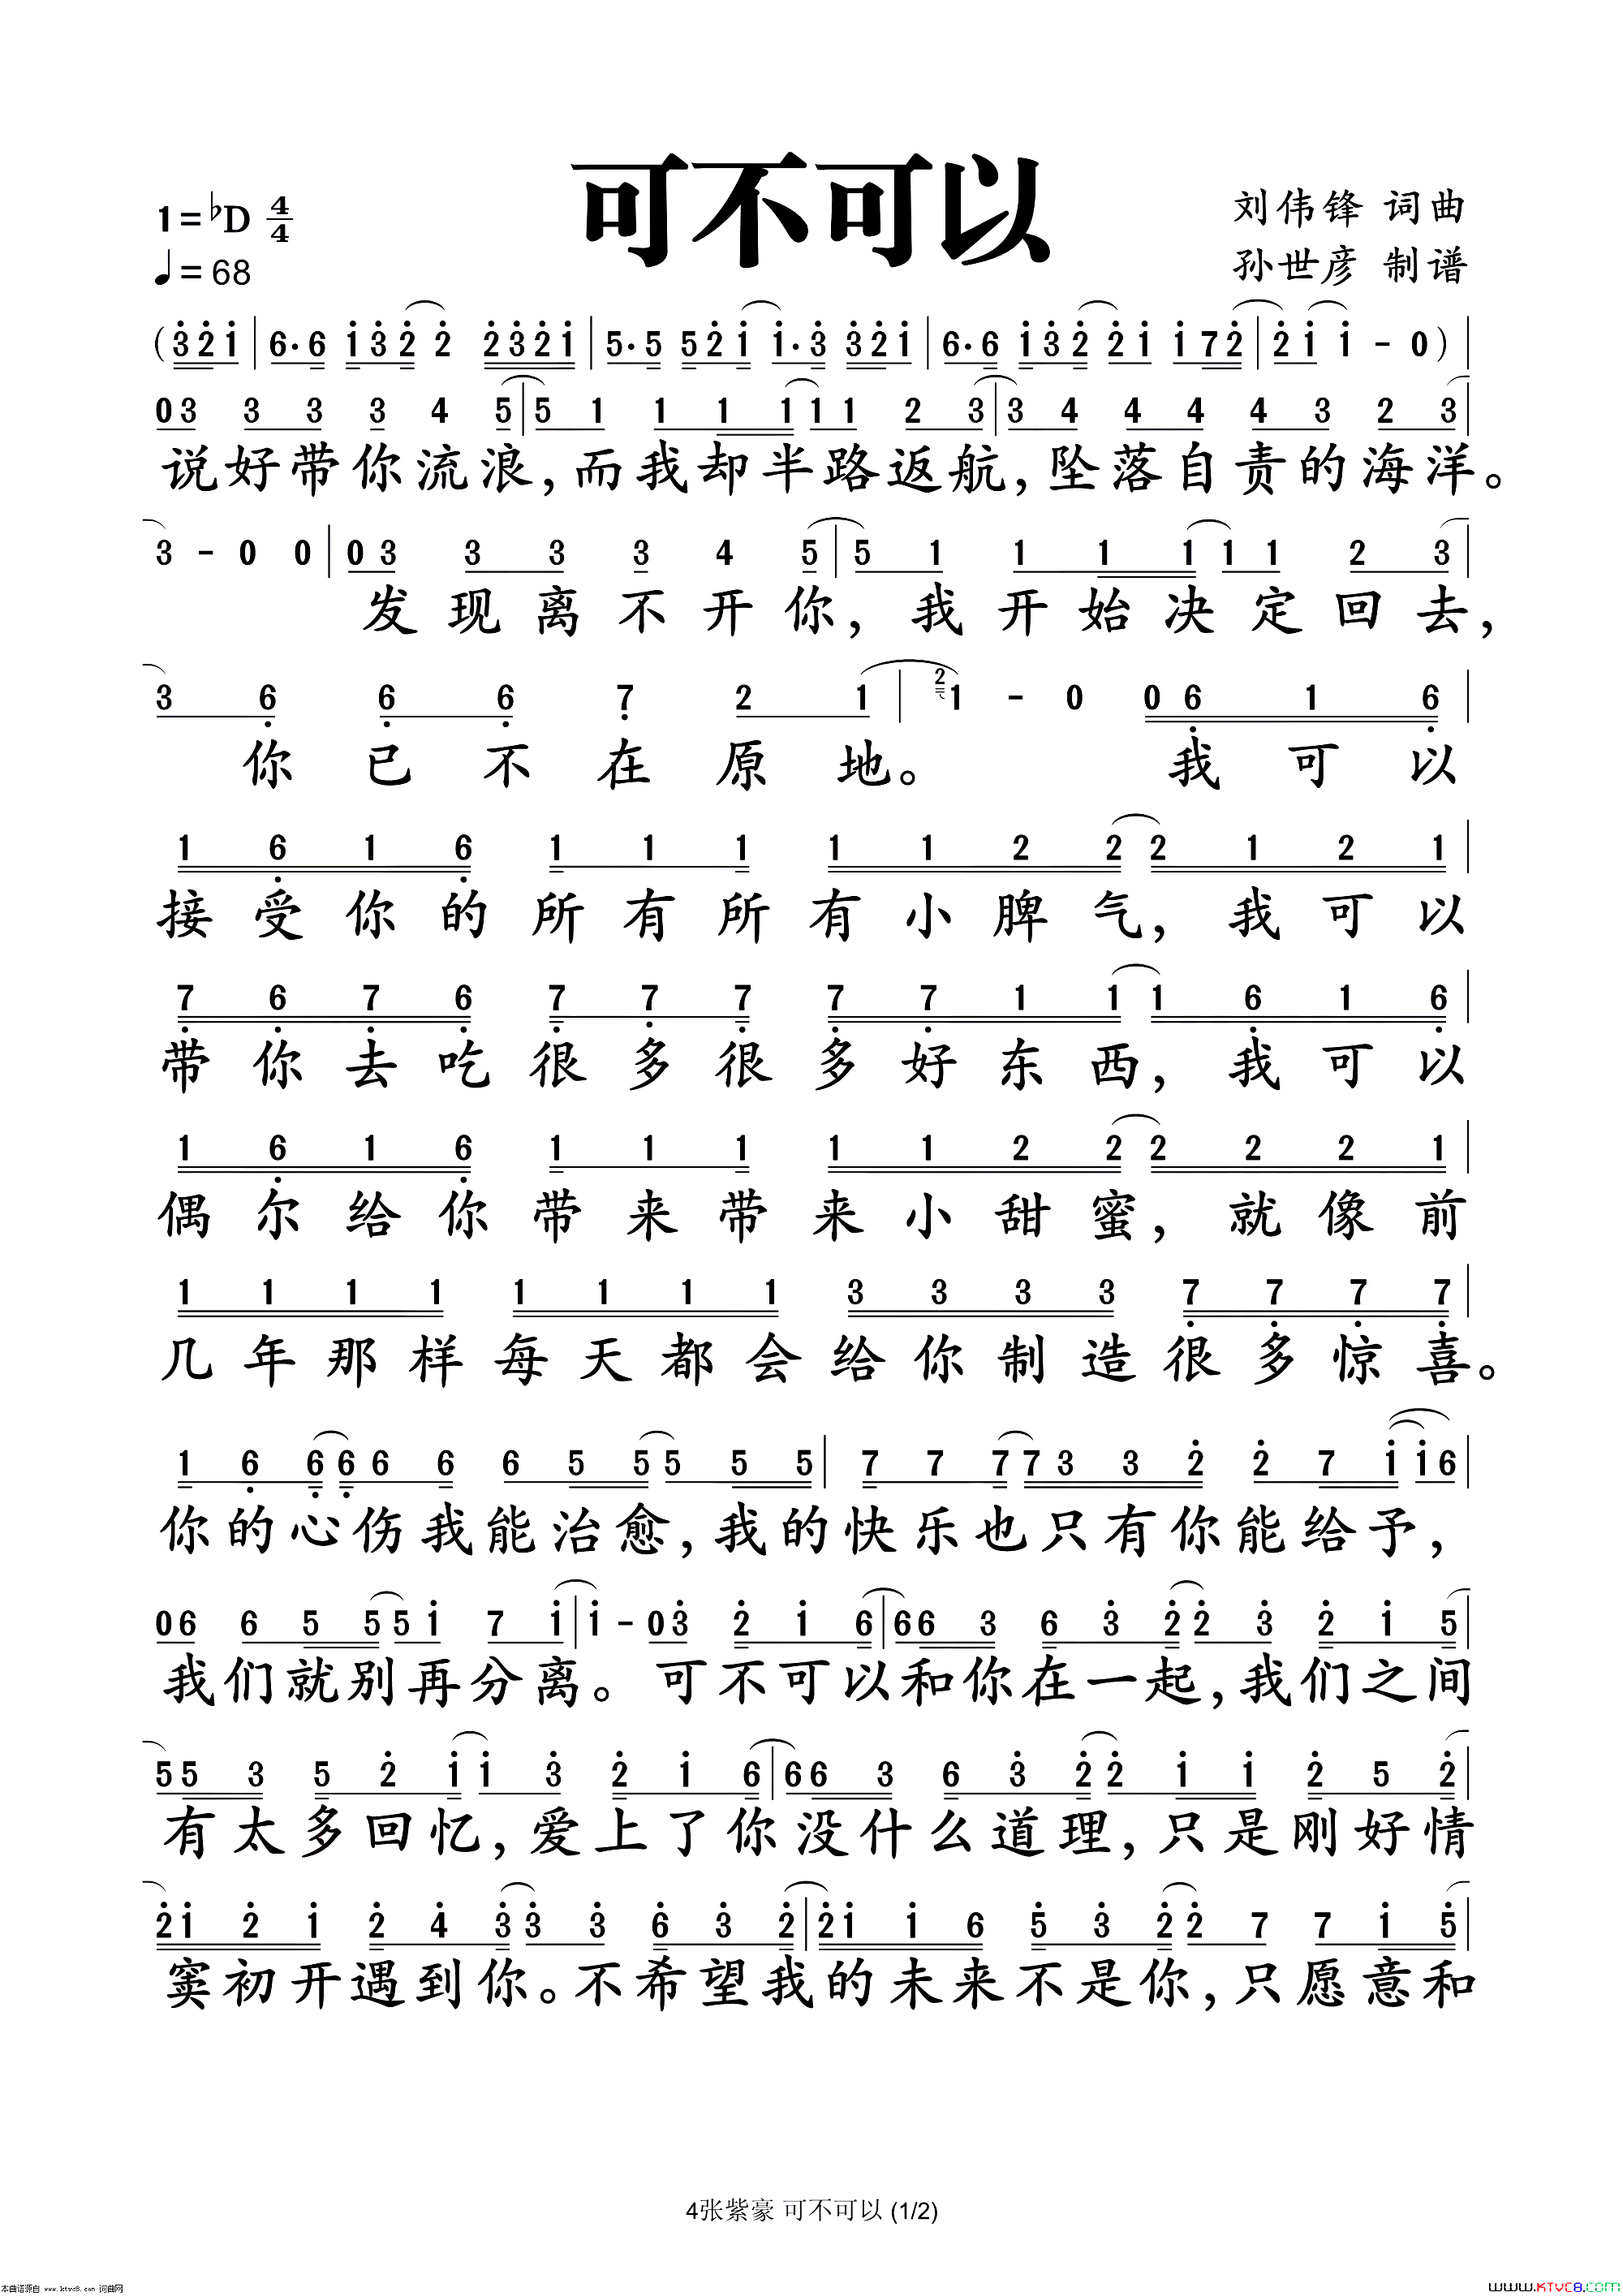 可不可以
1=♭D 4/4
♩=68
刘伟锋 词曲
孙世彦 制谱
(3 2 1 | 6· 6 1 3 2 2 2 3 2 1 | 5· 5 5 2 1 1· 3 3 2 1 | 6· 6 1 3 2 2 1 1 7 2 | 2 1 1 - 0) |
0 3 3 3 3 4 5 | 5 1 1 1 1 1 1 2 3 | 3 4 4 4 4 3 2 3 |
说好带你流浪,而我却半路返航,坠落自责的海洋。
3 - 0 0 | 0 3 3 3 3 4 5 | 5 1 1 1 1 1 1 2 3 |
发现离不开你,我开始决定回去,
3 6 6 6 7 2 1 | 2 1 - 0 0 6 1 6 |
你已不在原地。我可以
1 6 1 6 1 1 1 1 1 2 2 2 1 2 1 |
接受你的所有所有小脾气,我可以
7 6 7 6 7 7 7 7 7 1 1 1 6 1 6 |
带你去吃很多很多好东西,我可以
1 6 1 6 1 1 1 1 1 2 2 2 2 2 1 |
偶尔给你带来带来小甜蜜,就像前
1 1 1 1 1 1 1 1 3 3 3 3 7 7 7 7 |
几年那样每天都会给你制造很多惊喜。
1 6 6 6 6 6 6 5 5 5 5 5 | 7 7 7 7 3 3 2 2 7 1 1 6 |
你的心伤我能治愈,我的快乐也只有你能给予,
0 6 6 5 5 5 1 7 1 | 1 - 0 3 2 1 6 | 6 6 3 6 3 2 2 3 2 1 5 |
我们就别再分离。可不可以和你在一起,我们之间
5 5 3 5 2 1 1 3 2 1 6 | 6 6 3 6 3 2 2 1 1 2 5 2 |
有太多回忆,爱上了你没什么道理,只是刚好情
2 1 2 1 2 4 3 3 3 6 3 2 | 2 1 1 6 5 3 2 2 7 7 1 5 |
窦初开遇到你。不希望我的未来不是你,只愿意和
4张紫豪 可不可以 (1/2)
本曲谱源自 www.ktvc8.com 词曲网
WWW.KTVC8.COM